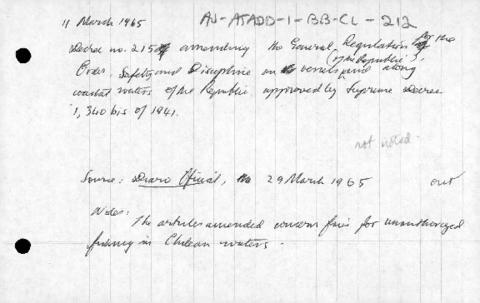 11 March 1965 AU-ATADD-1-BB-CL-212
Decree no. 215 amending the General Regulation for the
Order, Safety and Discipline on vessels of the Republic, and along
coastal waters of the Republic approved by Supreme Decree
1,340 bis of 1941.
not noted.
Source: Diario Oficial, 29 March 1965 out
Notes:
The articles amended concern fines for unauthorized
fishing in Chilean waters.